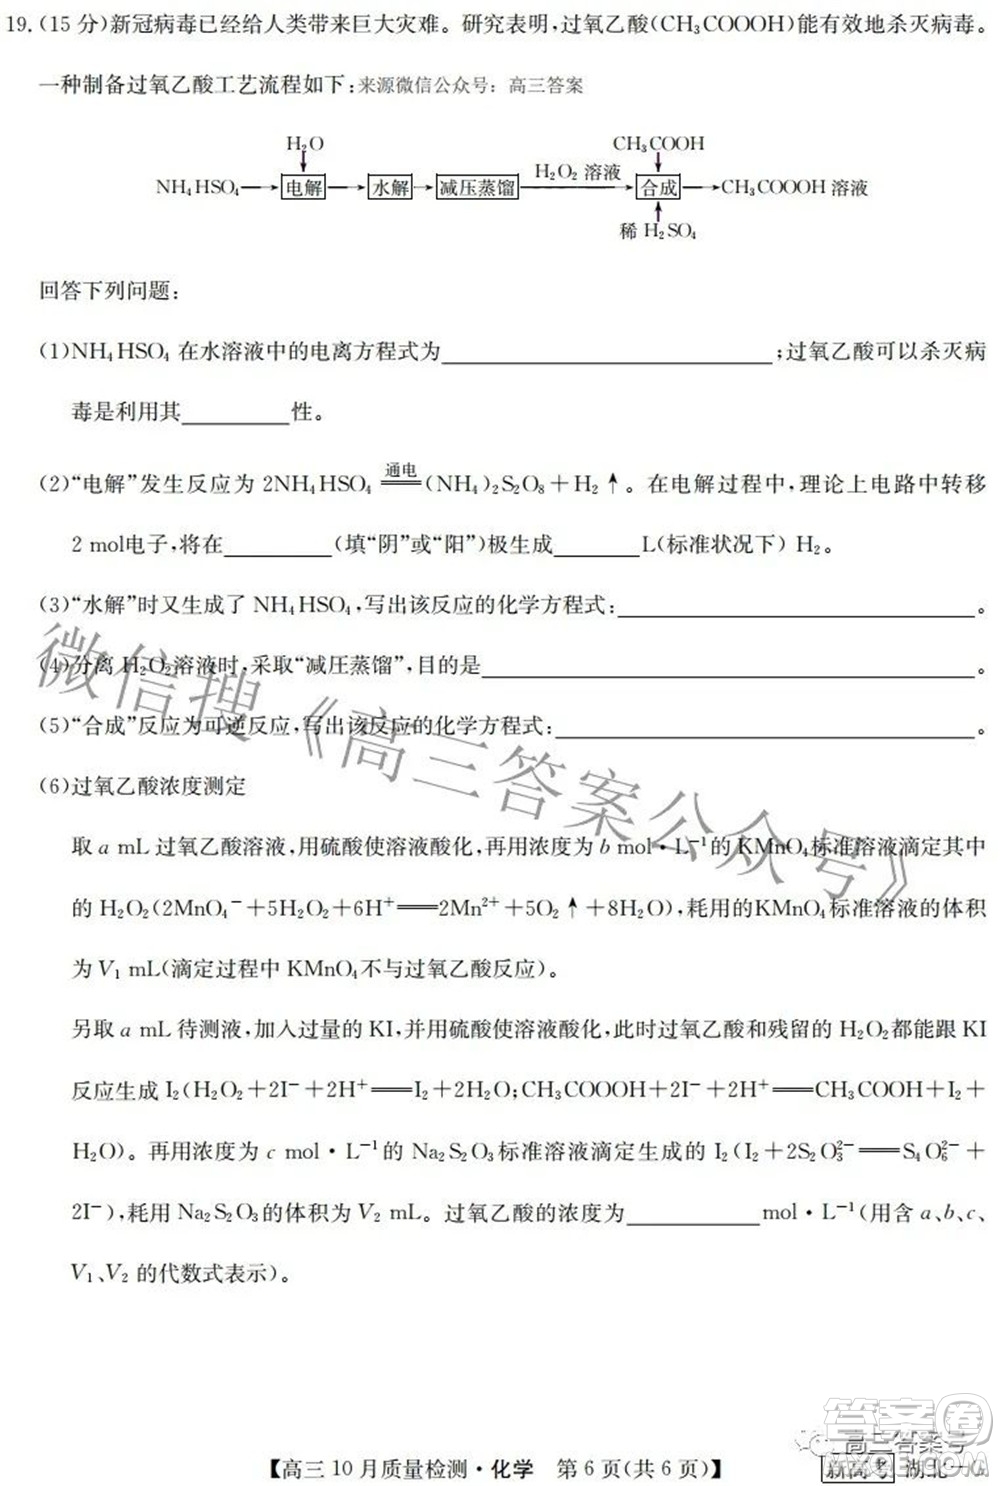 19.(15 分)新冠病毒已经给人类带来巨大灾难。研究表明,过氧乙酸(CH₃COOOH)能有效地杀灭病毒。
一种制备过氧乙酸工艺流程如下:来源微信公众号：高三答案
H₂O CH₃COOH
NH₄HSO₄ → 电解 → 水解 → 减压蒸馏 H₂O₂ 溶液 → 合成 → CH₃COOOH 溶液
稀 H₂SO₄
回答下列问题:
(1)NH₄HSO₄ 在水溶液中的电离方程式为____________;过氧乙酸可以杀灭病
毒是利用其________性。
(2)“电解”发生反应为 2NH₄HSO₄ 通电══ (NH₄)₂S₂O₈＋H₂↑。在电解过程中,理论上电路中转移
2 mol电子,将在________(填“阴”或“阳”)极生成______L(标准状况下) H₂。
(3)“水解”时又生成了 NH₄HSO₄,写出该反应的化学方程式:____________。
(4)分离 H₂O₂溶液时,采取“减压蒸馏”,目的是____________。
(5)“合成”反应为可逆反应,写出该反应的化学方程式:____________。
(6)过氧乙酸浓度测定
取 a mL 过氧乙酸溶液,用硫酸使溶液酸化,再用浓度为 b mol·L⁻¹的 KMnO₄标准溶液滴定其中
的 H₂O₂(2MnO₄⁻＋5H₂O₂＋6H⁺══2Mn²⁺＋5O₂↑＋8H₂O),耗用的KMnO₄标准溶液的体积
为 V₁ mL(滴定过程中 KMnO₄不与过氧乙酸反应)。
另取 a mL 待测液,加入过量的 KI,并用硫酸使溶液酸化,此时过氧乙酸和残留的 H₂O₂都能跟 KI
反应生成 I₂(H₂O₂＋2I⁻＋2H⁺══I₂＋2H₂O;CH₃COOOH＋2I⁻＋2H⁺══CH₃COOH＋I₂＋
H₂O)。再用浓度为 c mol·L⁻¹ 的 Na₂S₂O₃标准溶液滴定生成的 I₂(I₂＋2S₂O₃²⁻══S₄O₆²⁻＋
2I⁻),耗用 Na₂S₂O₃的体积为 V₂ mL。过氧乙酸的浓度为________mol·L⁻¹(用含 a、b、c、
V₁、V₂ 的代数式表示)。
微信搜《高三答案公众号》
答案圈
高三答案号
【高三 10 月质量检测·化学　第 6 页(共 6 页)】
新高考 湖北